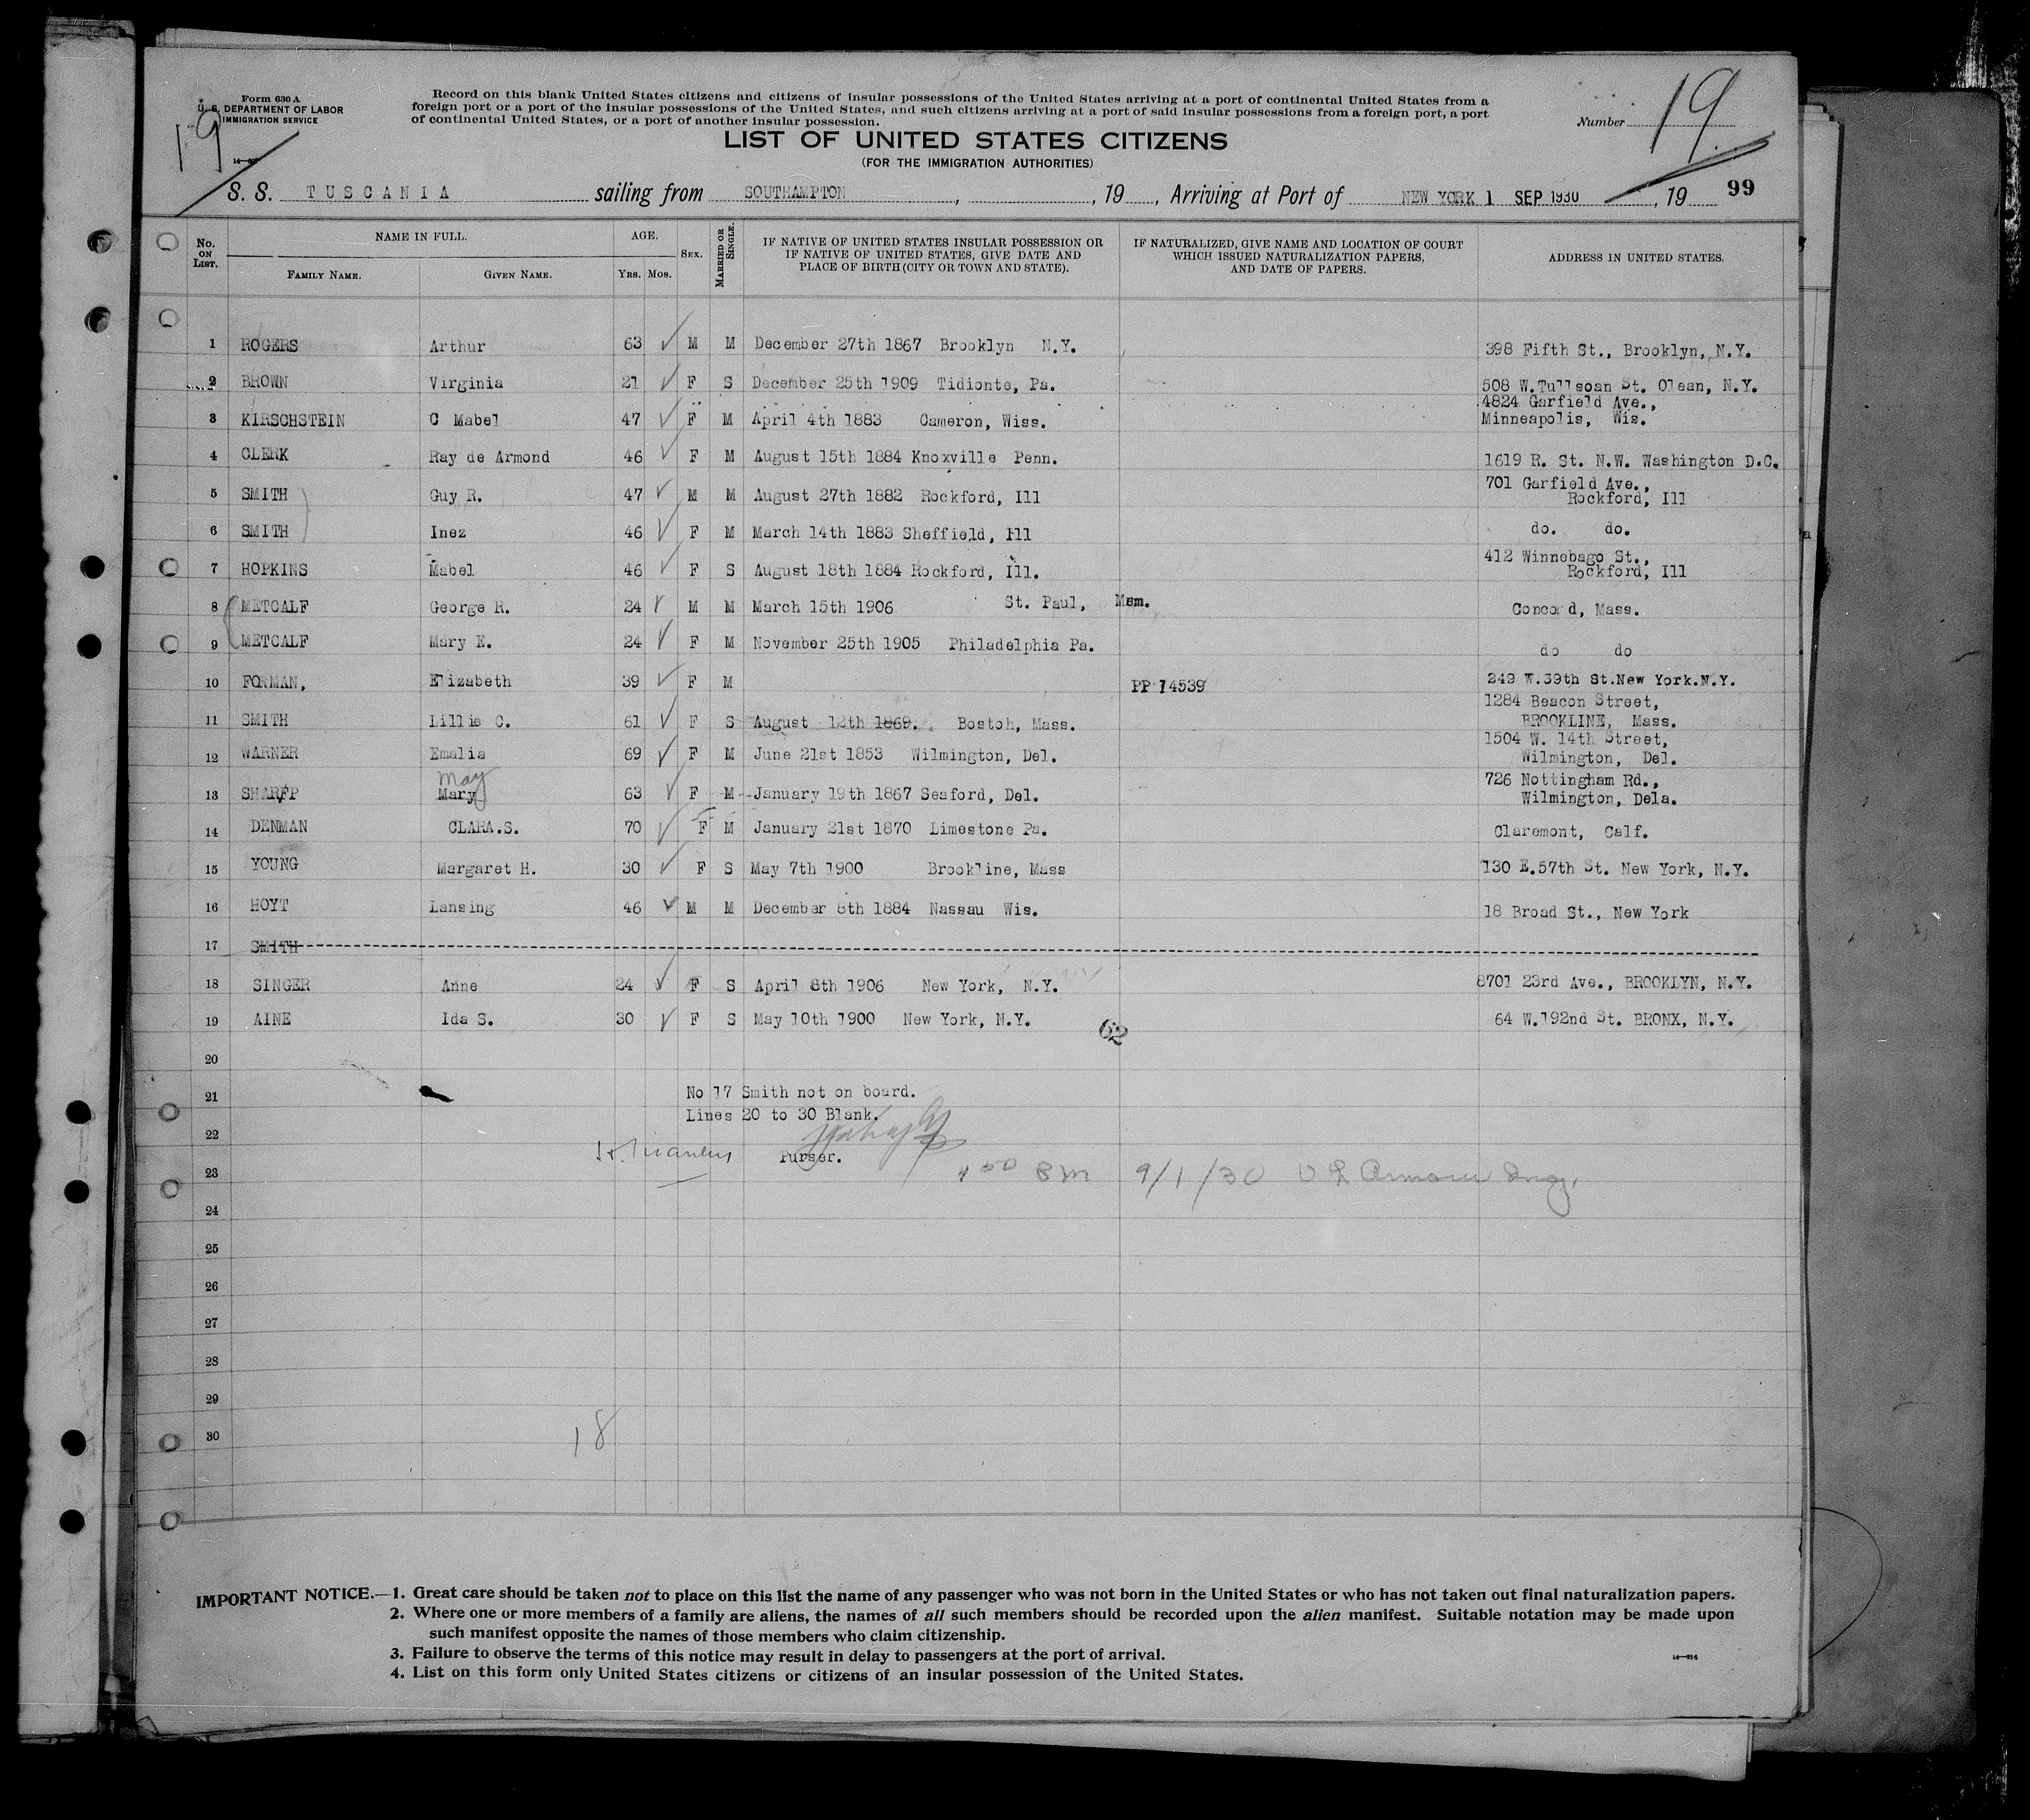 Form 630 A
U. S. DEPARTMENT OF LABOR
IMMIGRATION SERVICE
19
Record on this blank United States citizens and citizens of insular possessions of the United States arriving at a port of continental United States from a
foreign port or a port of the insular possessions of the United States, and such citizens arriving at a port of said insular possessions from a foreign port, a port
of continental United States, or a port of another insular possession.
Number 19
LIST OF UNITED STATES CITIZENS
(FOR THE IMMIGRATION AUTHORITIES)
S. S. TUSCANIA sailing from SOUTHAMPTON, , 19 , Arriving at Port of NEW YORK 1 SEP 1930 , 19 99
No. ON LIST. NAME IN FULL. FAMILY NAME. GIVEN NAME. AGE. YRS. MOS. SEX. MARRIED OR SINGLE. IF NATIVE OF UNITED STATES INSULAR POSSESSION OR IF NATIVE OF UNITED STATES, GIVE DATE AND PLACE OF BIRTH (CITY OR TOWN AND STATE). IF NATURALIZED, GIVE NAME AND LOCATION OF COURT WHICH ISSUED NATURALIZATION PAPERS, AND DATE OF PAPERS. ADDRESS IN UNITED STATES.
1 ROGERS Arthur 63 M M December 27th 1867 Brooklyn N.Y. 398 Fifth St., Brooklyn, N.Y.
2 BROWN Virginia 21 F S December 25th 1909 Tidionte, Pa. 508 W.Tullsoan St. Olean, N.Y.
3 KIRSCHSTEIN C Mabel 47 F M April 4th 1883 Cameron, Wiss. 4824 Garfield Ave., Minneapolis, Wis.
4 CLERK Ray de Armond 46 F M August 15th 1884 Knoxville Penn. 1619 R. St. N.W. Washington D.C.
5 SMITH Guy R. 47 M M August 27th 1882 Rockford, Ill 701 Garfield Ave., Rockford, Ill
6 SMITH Inez 46 F M March 14th 1883 Sheffield, Ill do. do.
7 HOPKINS Mabel 46 F S August 18th 1884 Rockford, Ill. 412 Winnebago St., Rockford, Ill
8 METCALF George R. 24 M M March 15th 1906 St. Paul, Concord, Mass.
9 METCALF Mary E. 24 F M November 25th 1905 Philadelphia Pa. do do
10 FORMAN, Elizabeth 39 F M PP 14539 249 W.39th St.New York.N.Y.
11 SMITH Lillie C. 61 F S August 12th 1869. Boston, Mass. 1284 Beacon Street, BROOKLINE, Mass.
12 WARNER Emalia 69 F M June 21st 1853 Wilmington, Del. 1504 W. 14th Street, Wilmington, Del.
May
13 SHARPP Mary 63 F M January 19th 1867 Seaford, Del. 726 Nottingham Rd., Wilmington, Dela.
14 DENMAN CLARA.S. 70 F M January 21st 1870 Limestone Pa. Claremont, Calf.
15 YOUNG Margaret H. 30 F S May 7th 1900 Brookline, Mass 130 E.57th St. New York, N.Y.
16 HOYT Lansing 46 M M December 8th 1884 Nassau Wis. 18 Broad St., New York
17 SMITH
18 SINGER Anne 24 F S April 8th 1906 New York, N.Y. 8701 23rd Ave., BROOKLYN, N.Y.
19 AINE Ida S. 30 F S May 10th 1900 New York, N.Y. 64 W.192nd St. BRONX, N.Y.
62
20
21 No 17 Smith not on board.
Lines 20 to 30 Blank.
22
Purser.
23 9/1/30
24
25
26
27
28
29
30
18
IMPORTANT NOTICE.—1. Great care should be taken not to place on this list the name of any passenger who was not born in the United States or who has not taken out final naturalization papers.
2. Where one or more members of a family are aliens, the names of all such members should be recorded upon the alien manifest. Suitable notation may be made upon
such manifest opposite the names of those members who claim citizenship.
3. Failure to observe the terms of this notice may result in delay to passengers at the port of arrival.
4. List on this form only United States citizens or citizens of an insular possession of the United States.